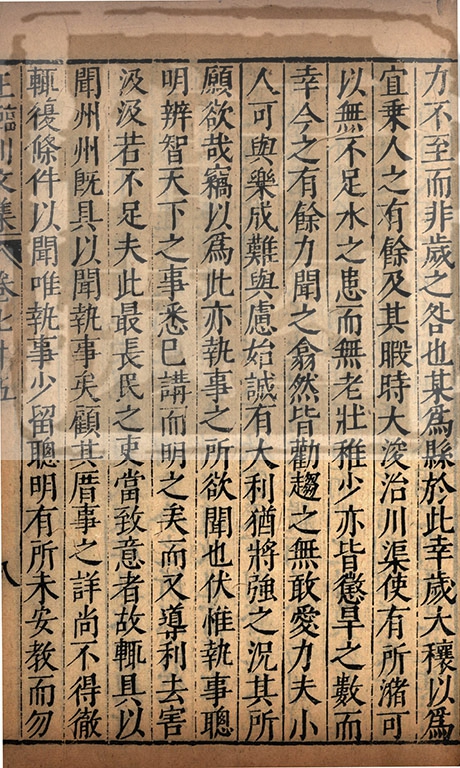 力不至而非歲之咎也某為縣於此幸歲大穰以為
宜乗人之有餘及其暇時大浚治川渠使有所瀦可
以無不足水之患而無老壯稚少亦皆懲旱之數而
幸今之有餘力聞之翕然皆勸趨之無敢愛力夫小
人可與樂成難與慮始誠有大利猶將強之況其所
願欲哉竊以為此亦執事之所欲聞也伏惟執事聰
明辨智天下之事悉已講而明之矣而又導利去害
汲汲若不足夫此最長民之吏當致意者故輒具以
聞州州既具以聞執事矣顧其厝事之詳尚不得徹
輒復條件以聞唯執事少留聰明有所未安教而勿
王臨川文集 卷七十五 八